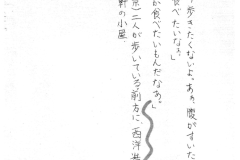 歩きたくないよ。あゝ、腹がすいた
食べたいなあ。」
が食べたいもんだなあ。」
二人が歩いている前方に、西洋
軒の小屋